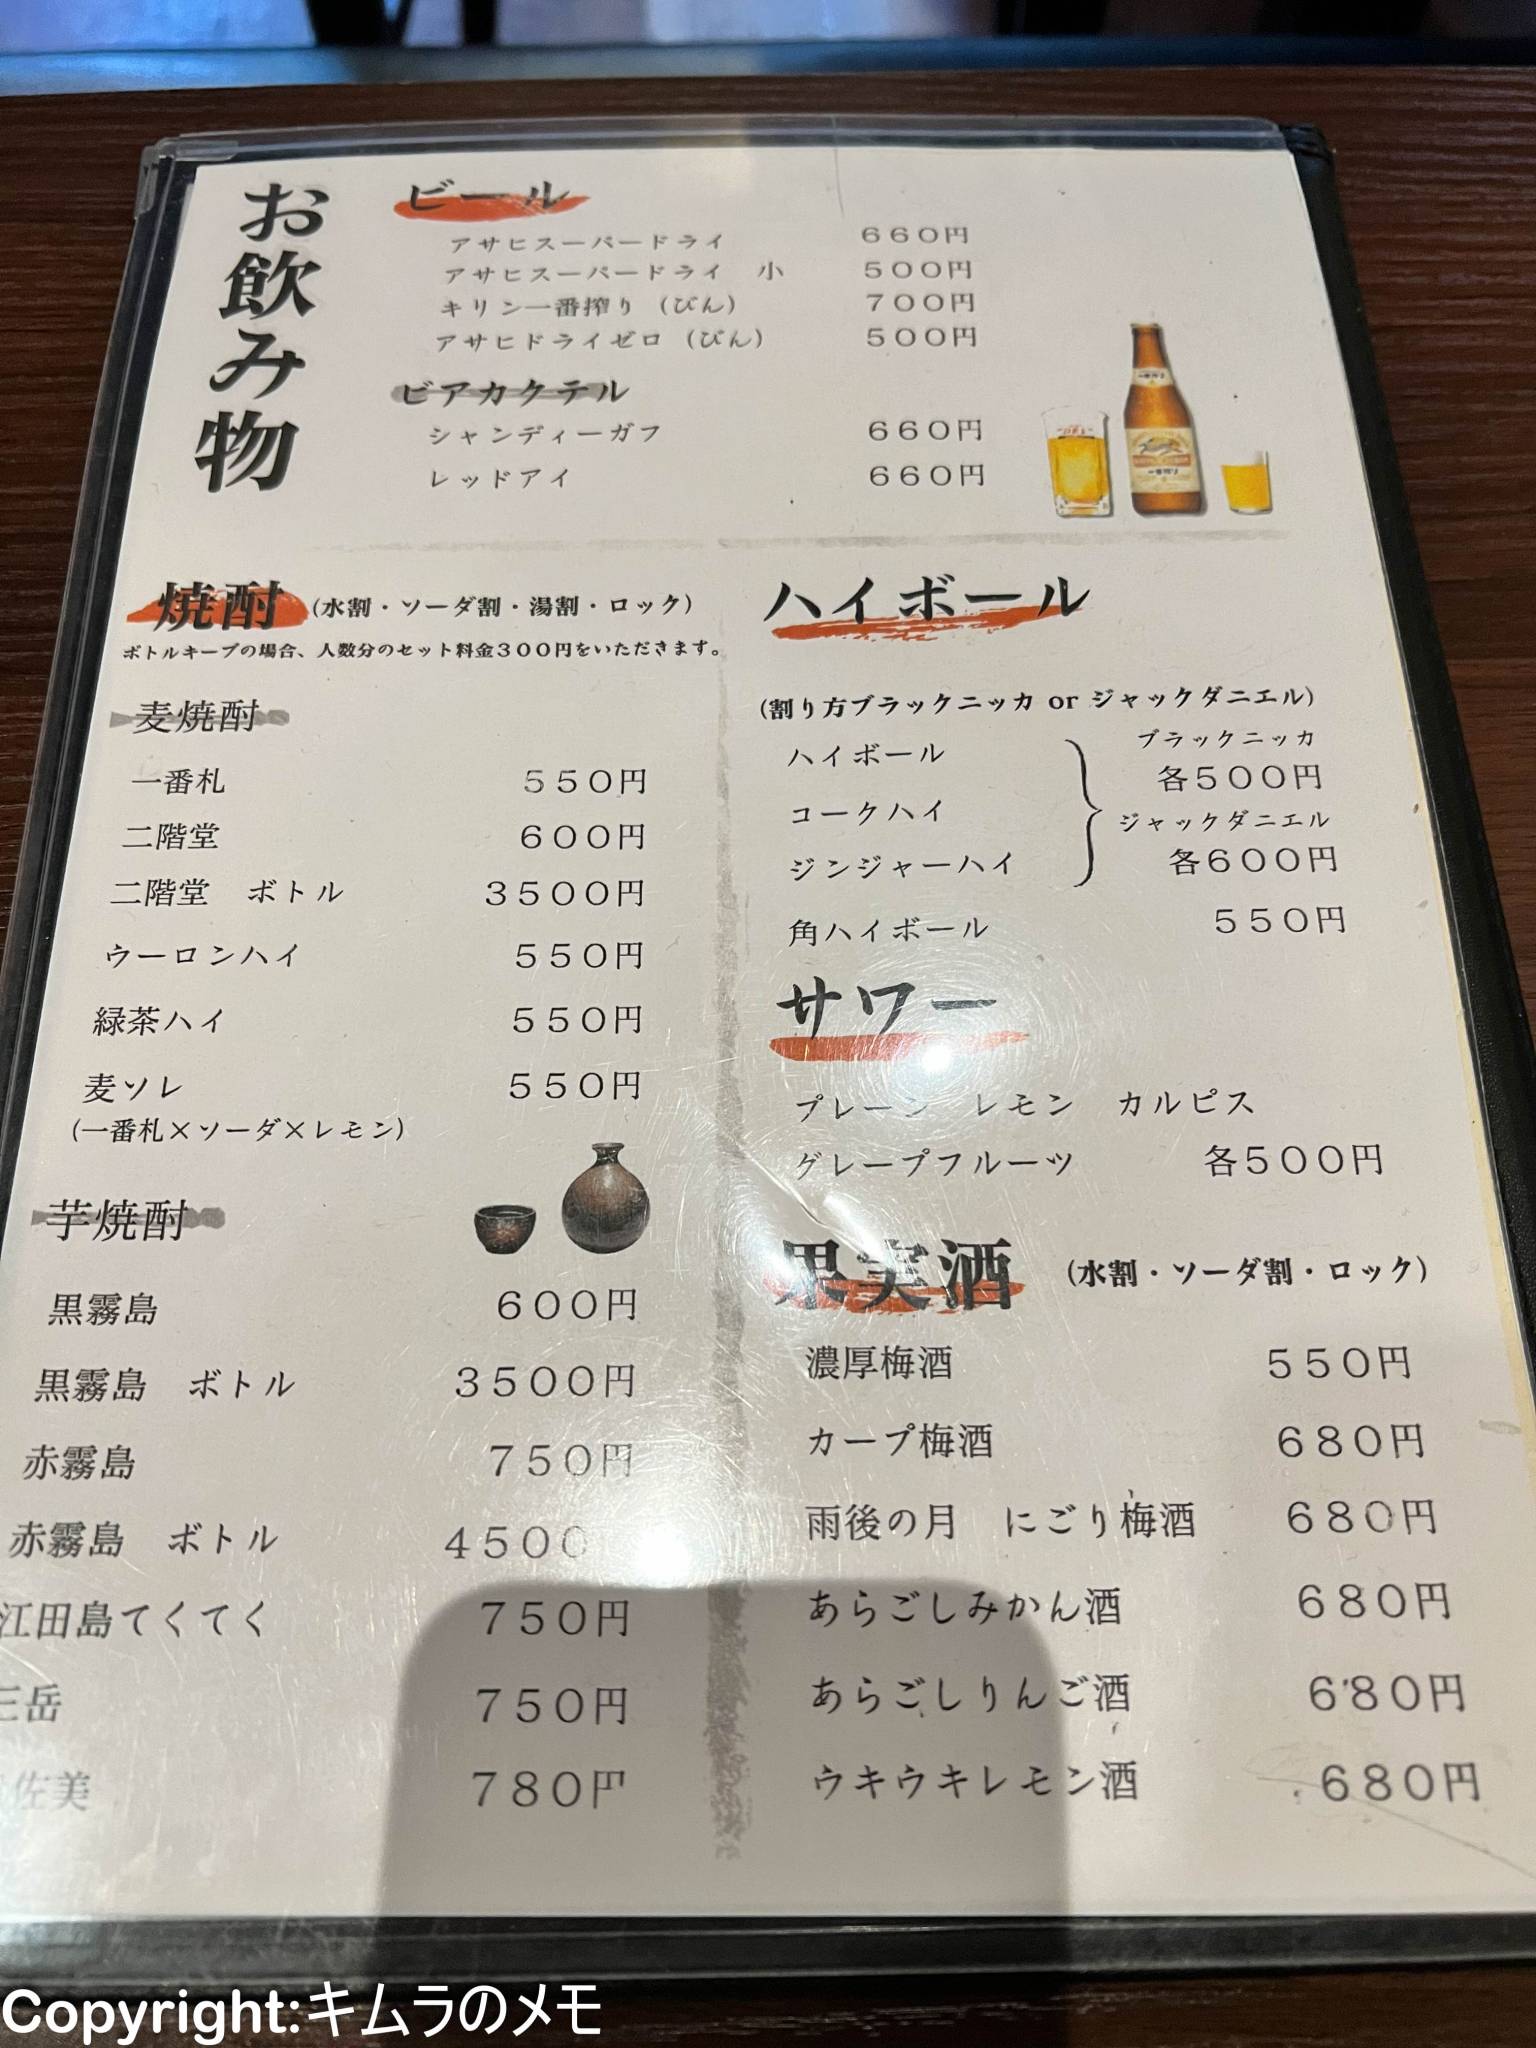 お飲み物
ビール
アサヒスーパードライ 660円
アサヒスーパードライ 小 500円
キリン一番搾り（びん） 700円
アサヒドライゼロ（びん） 500円
ビアカクテル
シャンディーガフ 660円
レッドアイ 660円
焼酎（水割・ソーダ割・湯割・ロック）
ボトルキープの場合、人数分のセット料金300円をいただきます。
麦焼酎
一番札 550円
二階堂 600円
二階堂 ボトル 3500円
ウーロンハイ 550円
緑茶ハイ 550円
麦ソレ 550円
（一番札×ソーダ×レモン）
芋焼酎
黒霧島 600円
黒霧島 ボトル 3500円
赤霧島 750円
赤霧島 ボトル 4500
江田島てくてく 750円
三岳 750円
佐美 780円
ハイボール
（割り方ブラックニッカ or ジャックダニエル）
ハイボール
コークハイ
ジンジャーハイ
ブラックニッカ
各500円
ジャックダニエル
各600円
角ハイボール 550円
サワー
プレーン レモン カルピス
グレープフルーツ 各500円
果実酒（水割・ソーダ割・ロック）
濃厚梅酒 550円
カープ梅酒 680円
雨後の月 にごり梅酒 680円
あらごしみかん酒 680円
あらごしりんご酒 680円
ウキウキレモン酒 680円
Copyright:キムラのメモ